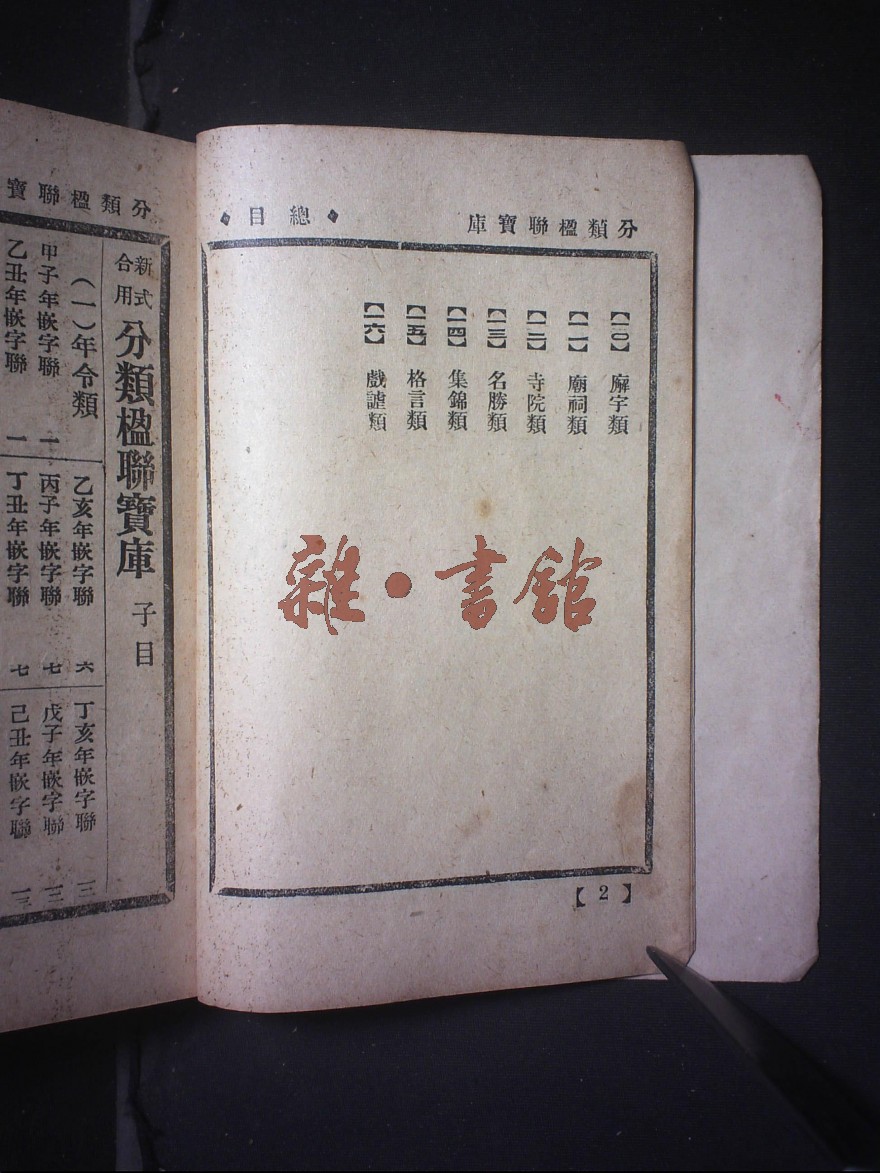 分類楹聯寶庫
◆總目◆
【一〇】廨宇類
【一一】廟祠類
【一二】寺院類
【一三】名勝類
【一四】集錦類
【一五】格言類
【一六】戲謔類
【2】
雜·書館
分類楹聯寶
新式合用 分類楹聯寶庫 子目
（一）年令類
乙亥年嵌字聯 六
丁亥年嵌字聯
甲子年嵌字聯 一
丙子年嵌字聯 七
戊子年嵌字聯
乙丑年嵌字聯 一
丁丑年嵌字聯 七
己丑年嵌字聯